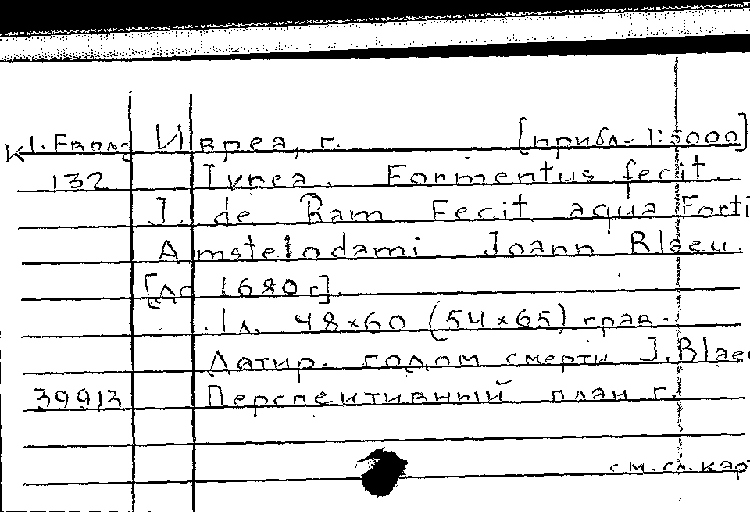 К1.Европ Ивреа, г. [прибл. 1:5000]
132 Ivrea. Formentus fecit.
J. de Ram Fecit aqua Forti
Amstelodami Joann Blaeu.
[до 1680 г].
1 л. 48×60 (54×65) грав.
Датир. годом смерти J. Blaeu
39913 Перспективный план г.
см. сл. карт